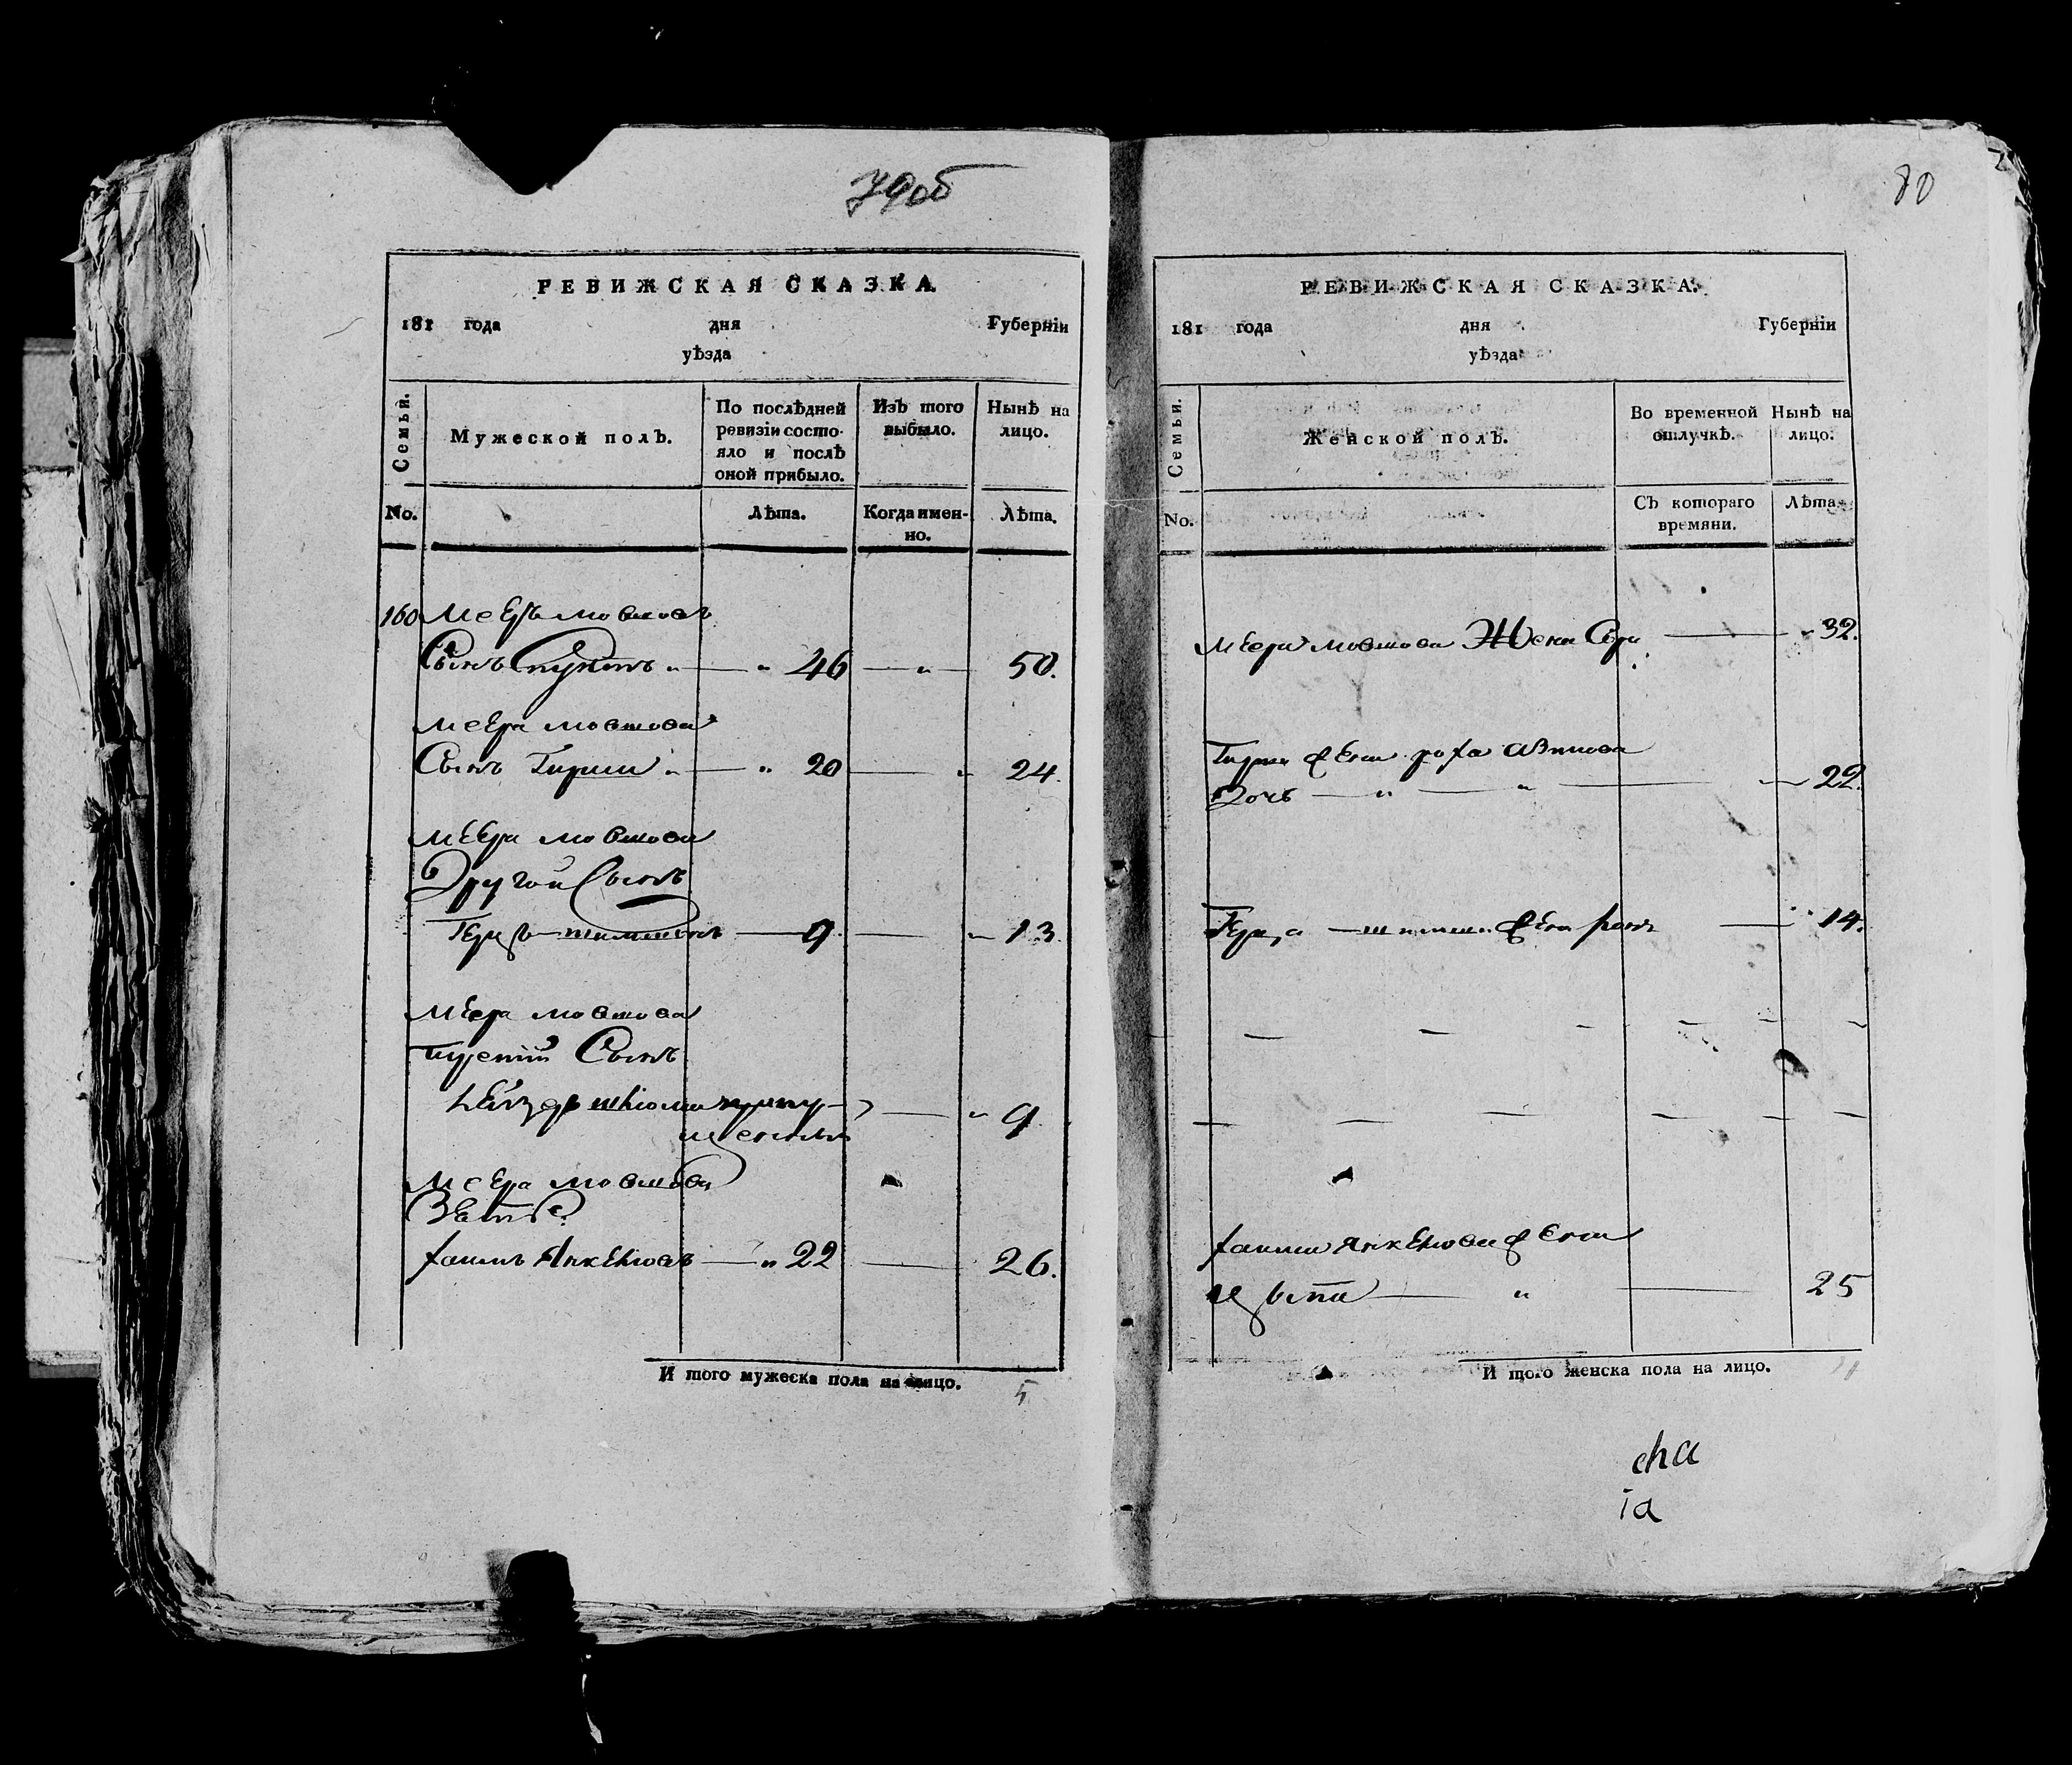 79об
РЕВИЖСКАЯ СКАЗКА.
181 года дня Губерніи
уѣзда
Семьи.
Мужеской полЪ.
По послѣдней ревизіи состо-
яло и послѣ оной прибыло.
ИзЪ того выбыло.
НынѣЪ на лицо.
No.
Лѣта.
Когда имен-
но.
Лѣта.
160 Мееръ Мовшовъ
Сынъ " — " 46 — " — 50.
Меера Мовшова
Сынъ Гирши " — " 20 — " 24.
Меера Мовшова
Другой Сынъ
Герцъ — — 9. — " 13
Меера Мовшова
третій Сынъ
пропу-
щенный — " 9
Меера Мовшова
Зять
Хаимъ Янкелювъ — " 22 — 26.
И того мужеска пола на лицо. 5
80
РЕВИЖСКАЯ СКАЗКА.
181 года дня Губерніи
уѣзда
Семьи.
Женской полЪ.
Во временной отлучкѣ.
Нынѣ на лицо.
No.
СЪ котораго времяни.
Лѣта.
Меера Мовшова Жена Сора — " 32.
Гирши Жена
Дочь — " — " — 22.
Герца — Жена — 14.
Хаима Янкелюва Жена
— " — 25
И того женска пола на лицо.